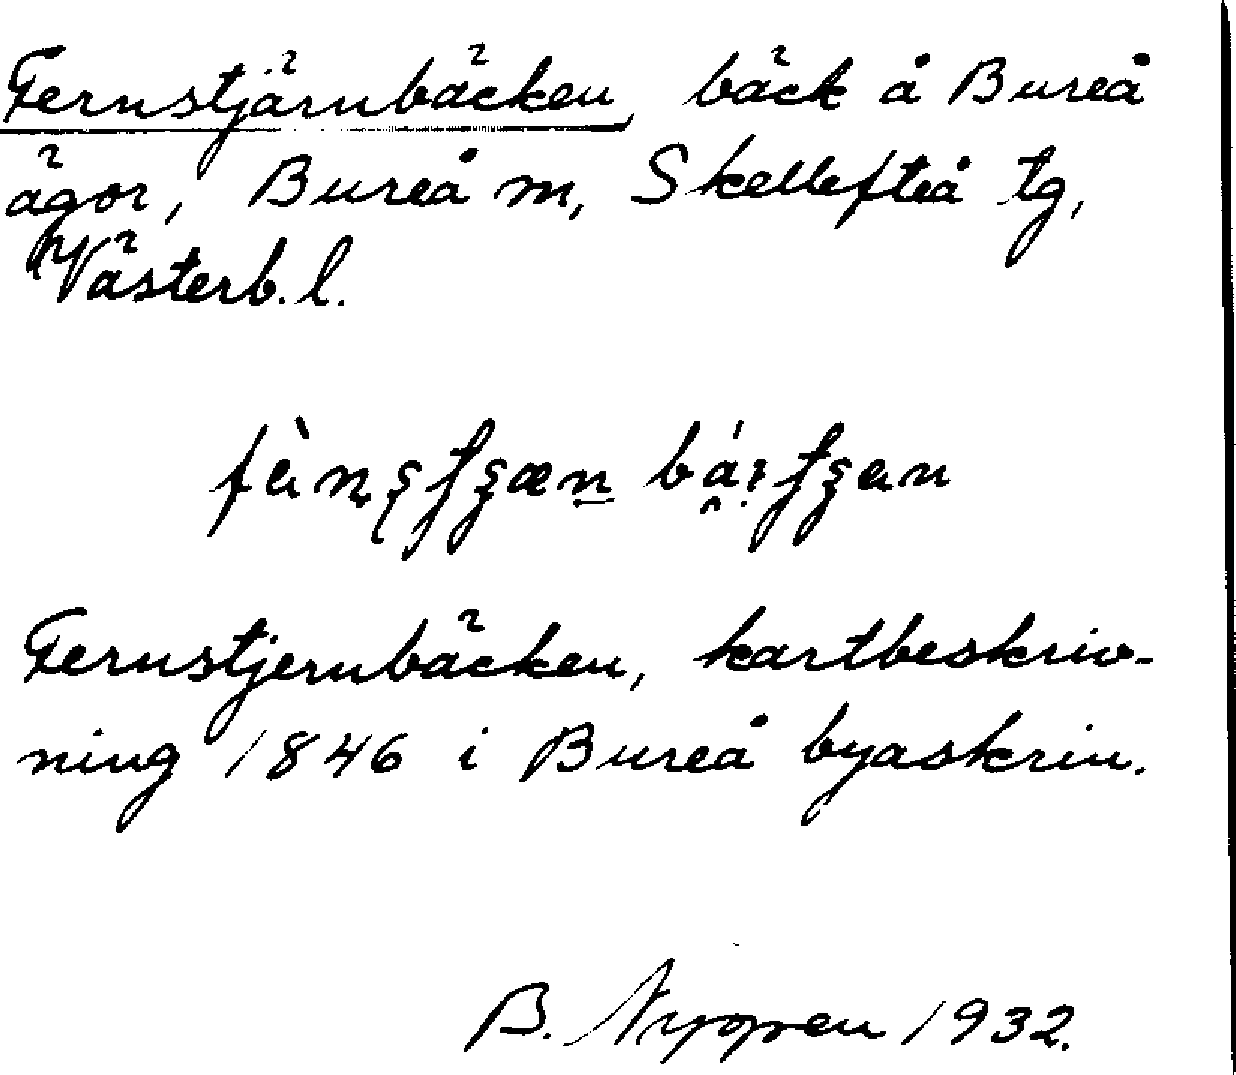 Fernstjärnbäcken, bäck å Bureå
ägor, Bureå m, Skellefteå tg,
Västerb. l.
Fernstjernbäcken, kartbeskriv-
ning 1846 i Bureå byaskrin.
B. Nygren 1932.